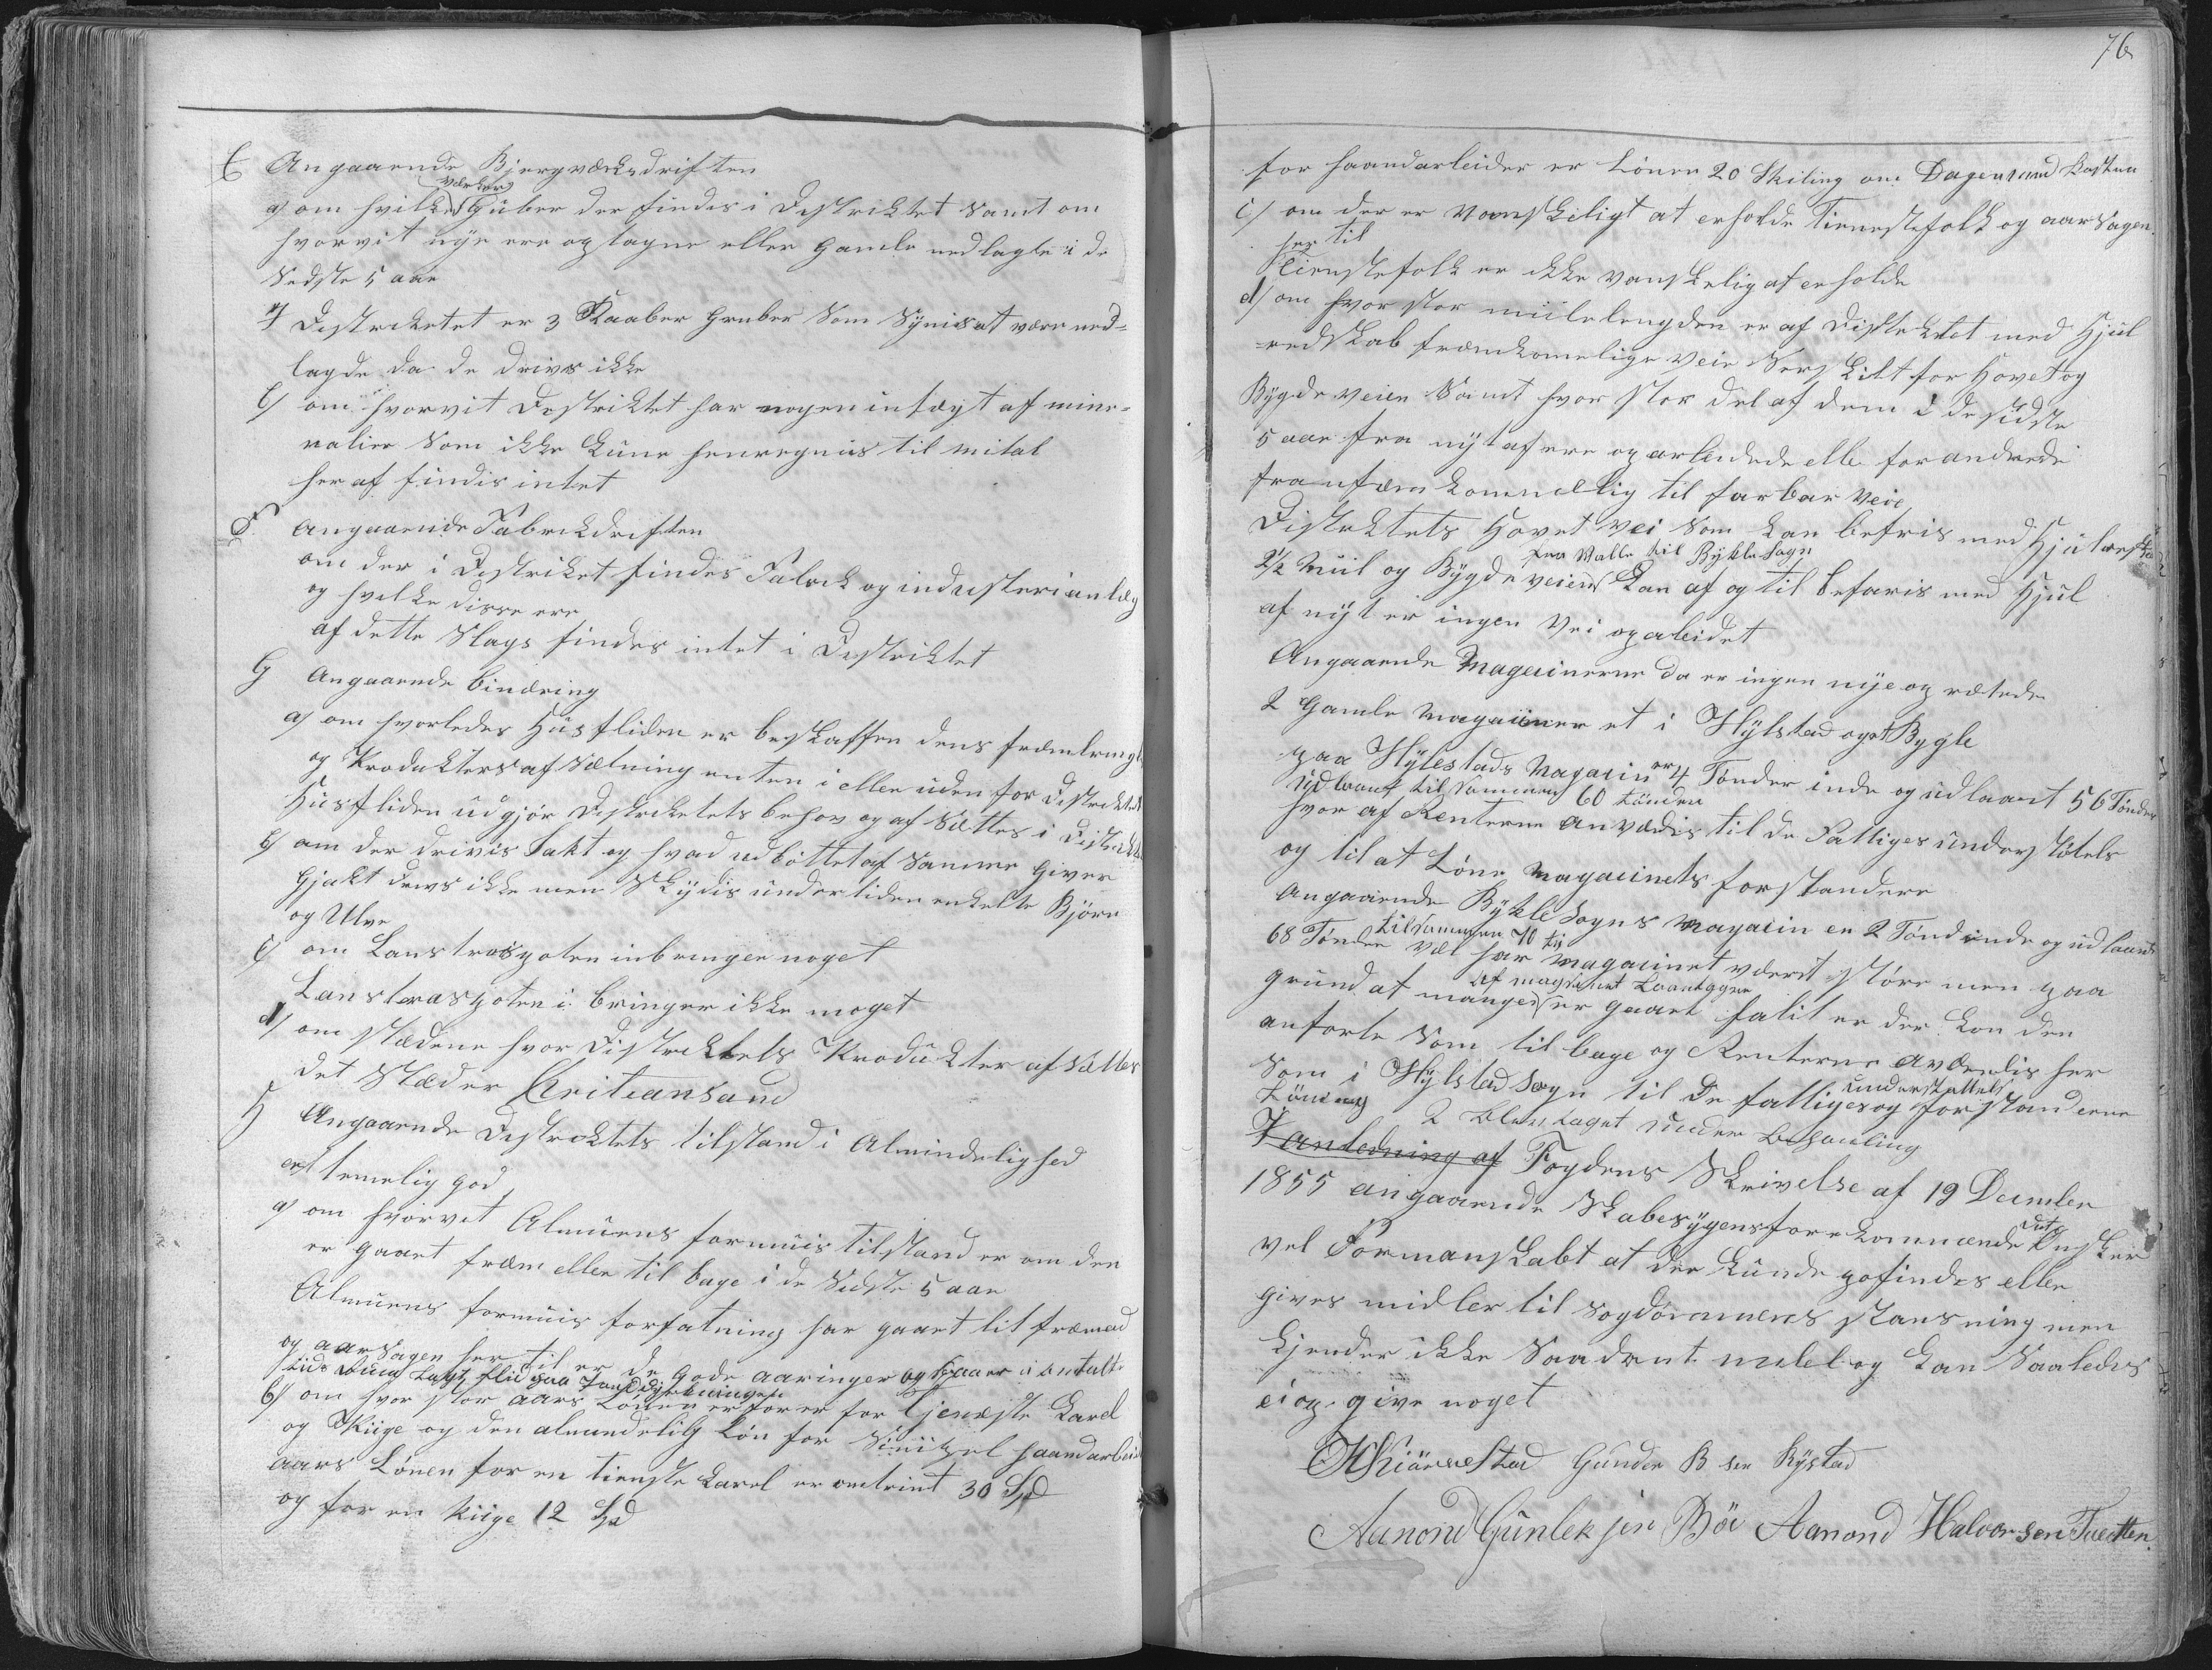 E Angaaende Bjergværksdriften
a) om hvilke værker Guber der findes i Destriktet samt om
hvorvit nye ere optagne eller gamle nedlagte i de
sidste 5 aar
I Destriktetet er 3 Kaaber Gruber som synis at være ned=
lagde da de drives ikke
b) om hvorvit Destriktet har nogen intægt af mine=
ralier som ikke kune henregnis til mital
her af findis intet
F. Angaaende Fabrikdriften
om der i Destriket findes Fabrik og industerianlæg
og hvelke disse ere
af dette slags findes intet i Destriktet
G Angaaende binæring
a) om hvorledes Husfliden er beskaffen dens frembringl.
og Produkters afsætning enten i eller uden for Destriktet
Husfliden udgjør Destriktets behov og afsættes i Distrikt
b) om der drivis Jakt og hvad udbøttet af samme giver
Gjakt drivs ikke men skydis undertiden enkelte Bjørn
og Ulve
c) om Lanstraspoten inbringer noget
Lanstraspoten i bringer ikke noget
d) om stædene hvor Distriktets Produkter afsættes
det stæder Cristiansand
H Angaaende Destriktets tilstand i Almindelighed
er temelig god
a) om hvorvit Almuens formuis tilstand er om den
er gaaet frem eller tilbage i de sidste 5 aar
Almuens formuis forfatning har gaaet lit fremad
og aarsagen her til er de gode aaringer og
b) om hvor stor aars Lønen er for en tjeneste Karel
og Piige og den almindelig Løn for haandarbeid
aars Lønen for en tieneste Karel er omtrint 30 Spd
og for en Piige 12 Spd
76
for haandarbeider er Lønen 20 Skiling om Dagen med Kosten
c) om der er vanskeligt at erholde Tienestefolk og aarsagen
her til
Tienstefolk er ikke vanskelig at erholde
d) om hvor stor miilelengden er af Distriktet med Hjul
=redskab fremkomelige Veie særskilt for Hovet og
Bygdeveien samt hvor stor del af dem i de sidste
5 aar fra nyt af ere oparbeidede elle forandrede
fra ufremkommellig til farbar Veie
Distriktets Hovet Vei som kan befris med Hjulredskab
2½ Miil og Bygdeveien fra Valle til Bykle Sogn kan af og til befaris med Hjul
af nyt er ingen Vei oparbeidet
Angaaende Magasinerne da er ingen nye oprettede
2 Gamle Magasiner et i Hylstad og et Bygle
paa Hylestads Magasin er 4 Tønder inde og udlaant 56 Tønder
udlaant tilsammen 60 tønder
hvor af Renterne anvædis til de Fattiges understøtels
og til at Løne Magasinets forstandere
Angaaende Bykle Sogns Magasin er 2 Tønd inde og udlaant
68 Tønder tilsammen 70 vel har Magasinet været støre men paa
grund at manges er gaaet falit er der kon den
anforte som tilbage og Renterne anvendis her
som i Hylstad sogn til de fattiges understøttels og forstanderne
Løning 2 blev taget under behanling
I anledning af Fogdens Skrivelse af 19 December
1855 angaaende Skabesygens forekommende ønsker
vel Formanskabt at der kunde opfindes eller
gives midler til sogdommens stansning men
kjender ikke saadant midel og kan saaledes
ei op give noget
Gunder B sen Rystad
Aanond Gunleksen Bøe Aanond Halvorsen Tveitten.